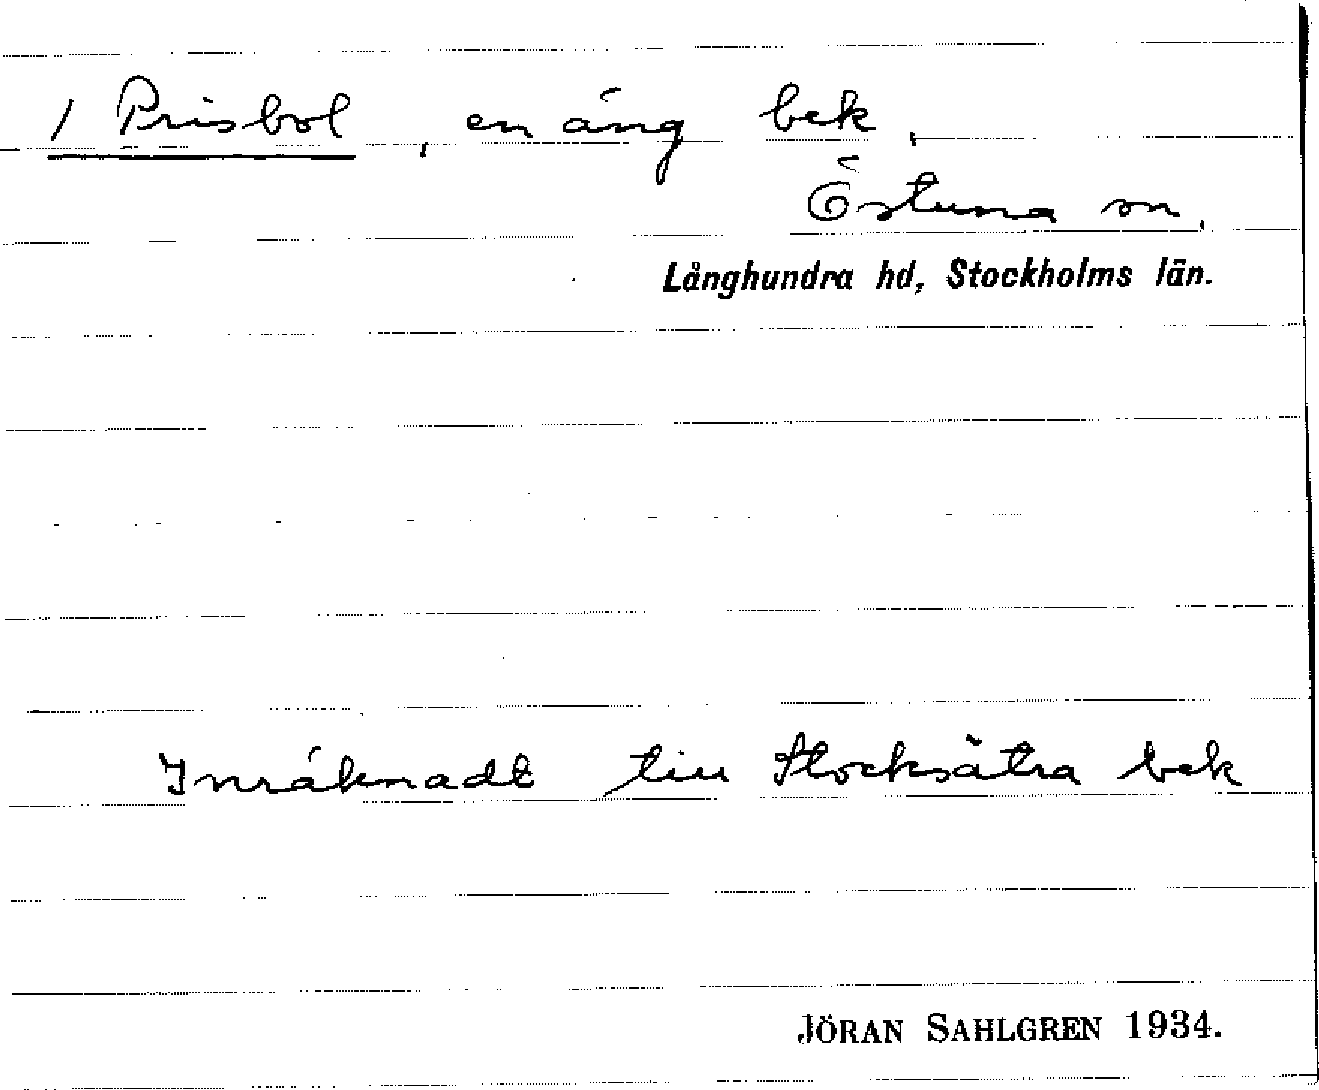 / Prisbol, en äng bek.
Östuna sn.
Långhundra hd, Stockholms län.
Inräknadt till Stocksätra bek
JÖRAN SAHLGREN 1934.